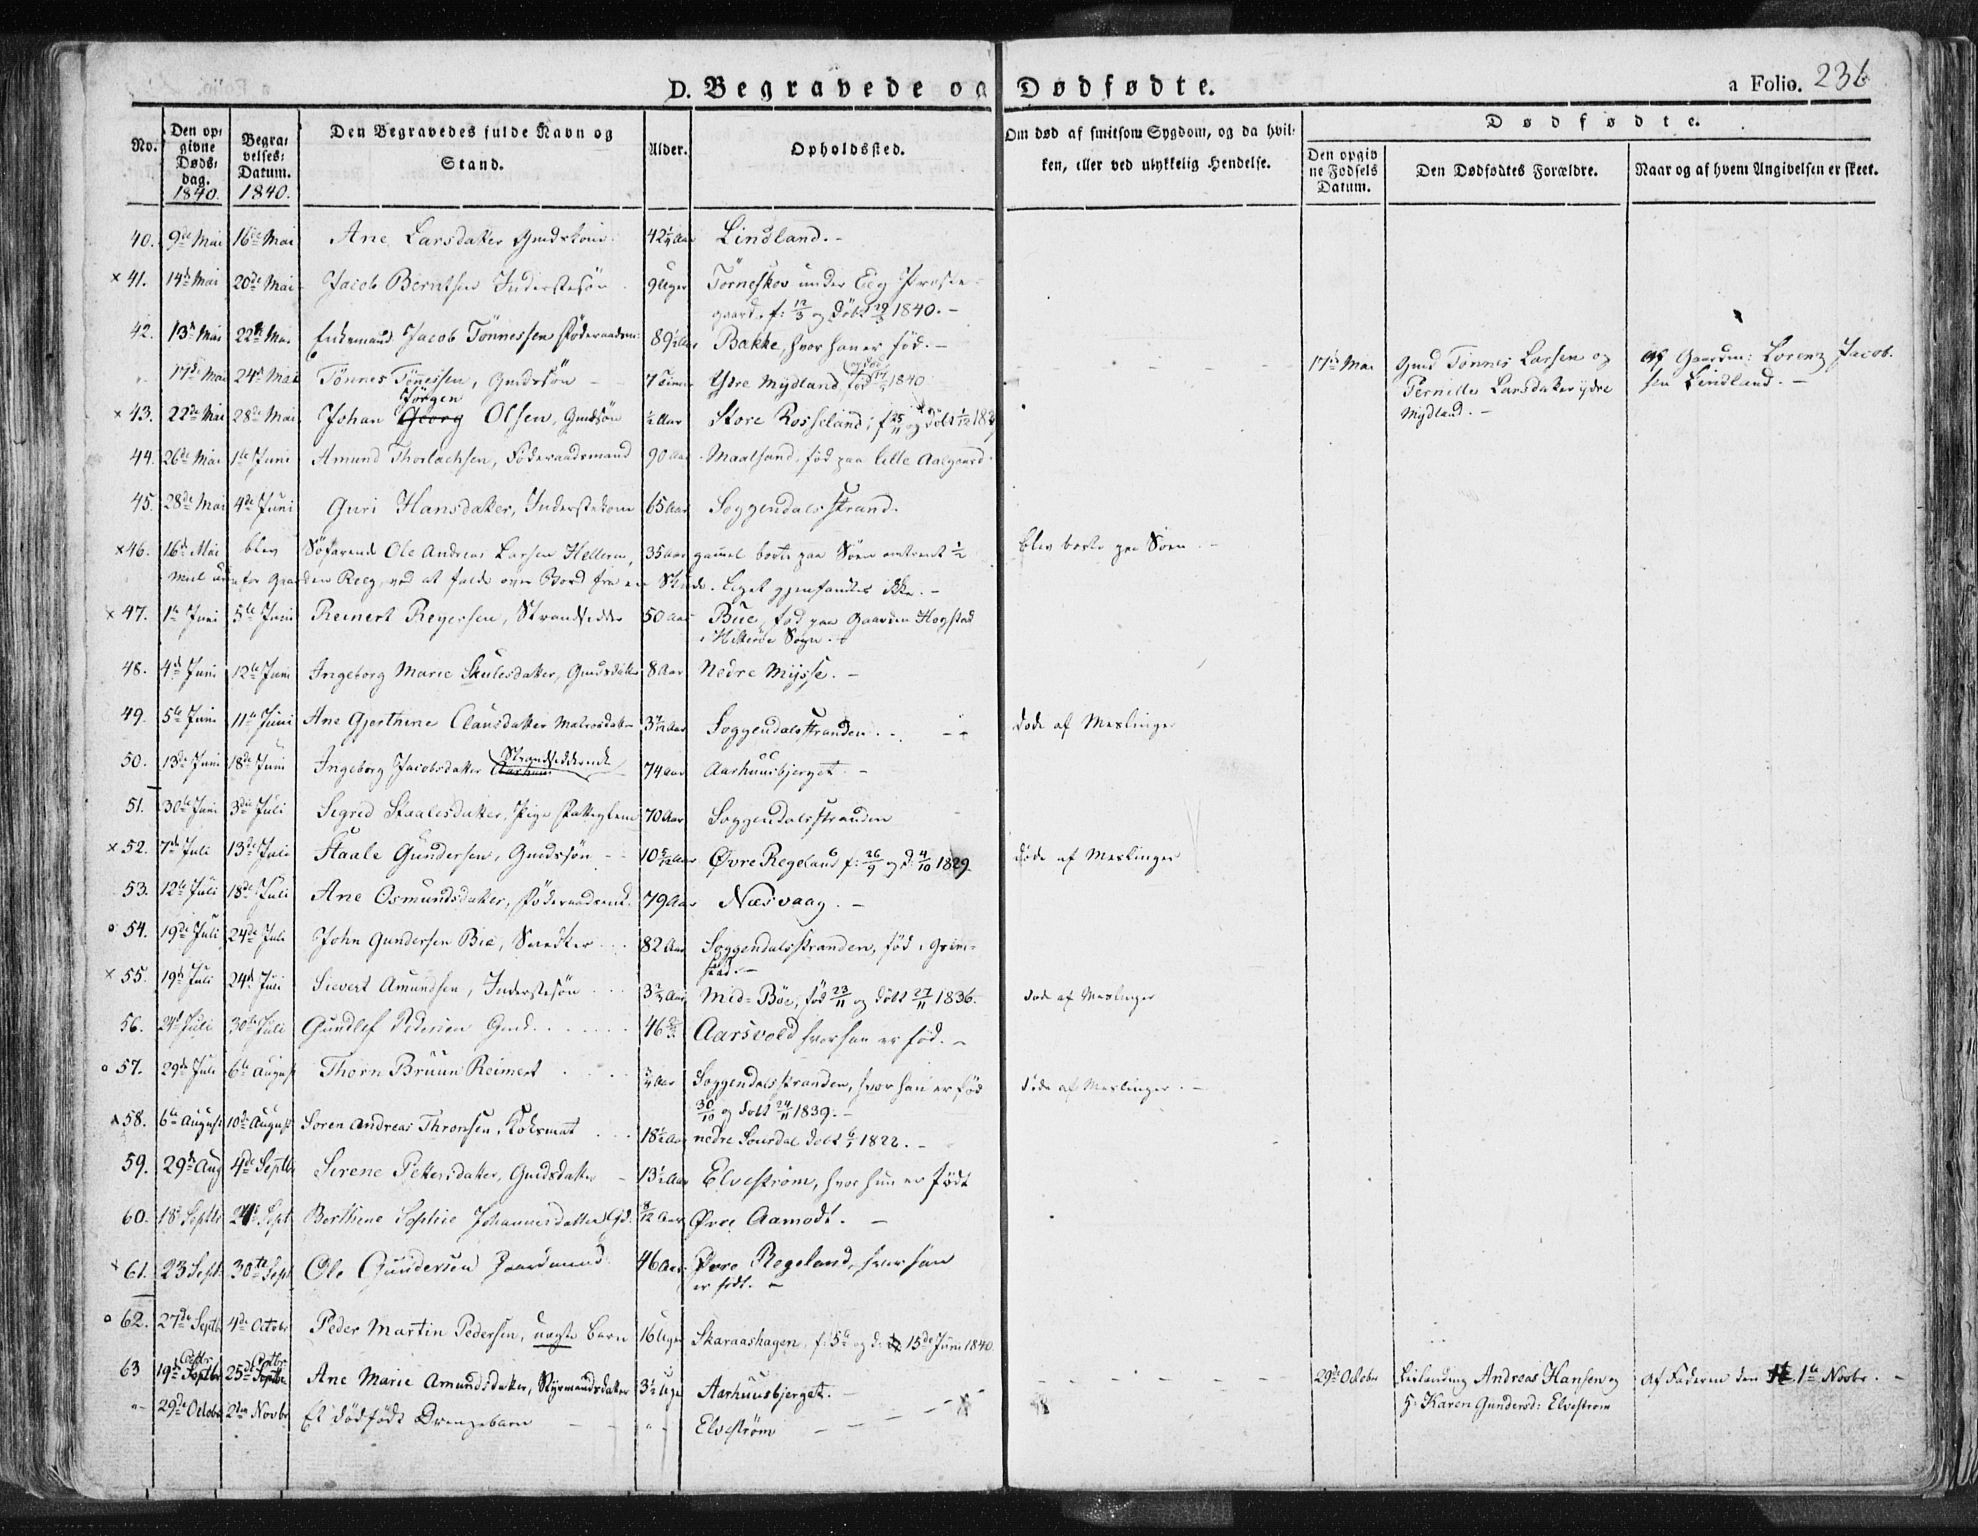 D. Begravede og Dødfødte.
a Folio. 236
No.
Den opgivne Dødsdag. 1840.
Begravelses-Datum. 1840.
Den Begravedes fulde Navn og Stand.
Alder.
Opholdssted.
Om død af smitsom Sygdom, og da hvilken, eller ved ulykkelig Hendelse.
Dødfødte.
Den opgivne Fødsels Datum.
Den Dødfødtes Forældre.
Naar og af hvem Angivelsen er skeet.
40. 9de Mai 16de Mai Ane Larsdatter Gmdskone 42 1/4 Aar Lindland. -
× 41. 14de Mai 20de Mai Jacob Berntsen Inderstesøn 9 Uger Törneskov under Eeg Præste-
gaard, f: 12/3 og döbt 29/3 1840. -
42. 13de Mai 22de Mai Enkemand Jacob Tönnessen Föderaadsm: 89 1/2 Aar Bakke, hvor han er föd. -
" 17de Mai 24de Mai Tönnes Tönnessen, Gmdssön - 7 Timer Ydre Mydland, föd og död 17/5 1840 17de Mai Gmd Tönnes Larsen og Af Gaardm: Lorenz Jacob-
Pernille Larsdatter ydre sen Lindland. -
Mydland. -
× 43. 22de Mai 28de Mai Johan Georg Jörgen Olsen, Gmdssön 1/2 Aar Store Rosseland, f 25/11 og döbt 1/12 1839
44. 26de Mai 1ste Juni Amund Thorlachsen, Föderaadsmand 90 Aar Maalsand, föd paa lille Aalgaard
45. 28de Mai 4de Juni Guri Hansdatter, Inderstekone 65 Aar Soggendalsstrand.
×46. 16de Mai blev Söfarende Ole Andreas Larsen Helleren, 35 aar gammel borte paa Söen omtrent 1/2 blev borte paa Söen. -
Miil udenfor Gaarden Reeg, ved at falde over Bord fra en Skude. Liget gjenfandtes ikke. -
× 47. 1ste Juni 5te Juni Reinert Reyersen, Strandsidder 50 Aar Bue, föd paa Gaarden Hogstad
i Hitteröe Sogn. -
48. 4de Juni 12te Juni Ingeborg Marie Skulesdatter, Gmdsdatter 8 Aar Nedre Mysse. -
49. 5te Juni 11te Juni Ane Gjerthine Clausdatter Matrosdatter 3 1/12 Aar Soggendalsstranden. - döde af Meslinger
50. 13de Juni 18de Juni Ingeborg Jacobsdatter Strandsidderenke 74 aar Aarhuusbjerget. -
51. 30te Juni 3die Juli Segred Staalesdatter, Pige Fattiglem 70 Aar Soggendalsstranden
× 52. 7de Juli 13de Juli Staale Gundersen, Gmdssön - 10 5/12 Aar Øvre Regeland f: 26/9 og d: 4/10 1829. döde af Meslinger
53. 12te Juli 18de Juli Ane Osmundsdatter, Föderaadsenke 79 Aar Næsvaag. -
o 54. 19de Juli 24de Juli John Gundersen Bie, Snedker 82 Aar Soggendalsstranden, föd i Grim-
stad. -
× 55. 19de Juli 24de Juli Sievert Amundsen, Inderstesön 3 3/4 Aar Mid-Böe, föd 23/11 og döbt 27/11 1836. död af Meslinger
56. 24de Juli 30te Juli Gundlef Pedersen Gmd. 46 Aar Aarsvold hvor han er föd. -
o 57. 29de Juli 6te August Thorn Bruun Reimert 3/4 Aar Soggendalsstranden, hvor han er föd döde af Meslinger. -
30/10 og döbt 24/11 1839. -
×58. 6te August 10de August Sören Andreas Thronsen, Koksmat 18 1/2 Aar nedre Sourdal döbt 6/1 1822. -
59. 29de Aug 4de Septbr Serene Pettersdatter, Gmdsdatter - 13 1/2 Aar Elvestrøm, hvor hun er födt
60. 18de Septbr 24de Sept Berthine Sophie Johannesdatter Gd. 8/12 Aar Øvre Aamodt. -
× 61. 23 Sept 30te Sept Ole Gundersen Gaardmand 46 Aar Øvre Regeland, hvor han
er födt. -
o 62. 27de Septb 4de Octobr Peder Martin Pedersen, uægte Barn 16 Uger Skaraashagen, f: 5te og d: 15de Juni 1840.
63 19de Octbr 25de Octbr Ane Marie Amundsdatter, Styrmandsdatter 3 1/2 Uge Aarhuusbjerget. - 29de Octobr Andreas Hansen og Af Faderen den 1ste Novbr. -
" 29de Octobr 2den Novbr Et dödfödt Drengebarn - - " Elveström - H: Karen Gundersd: Elveström